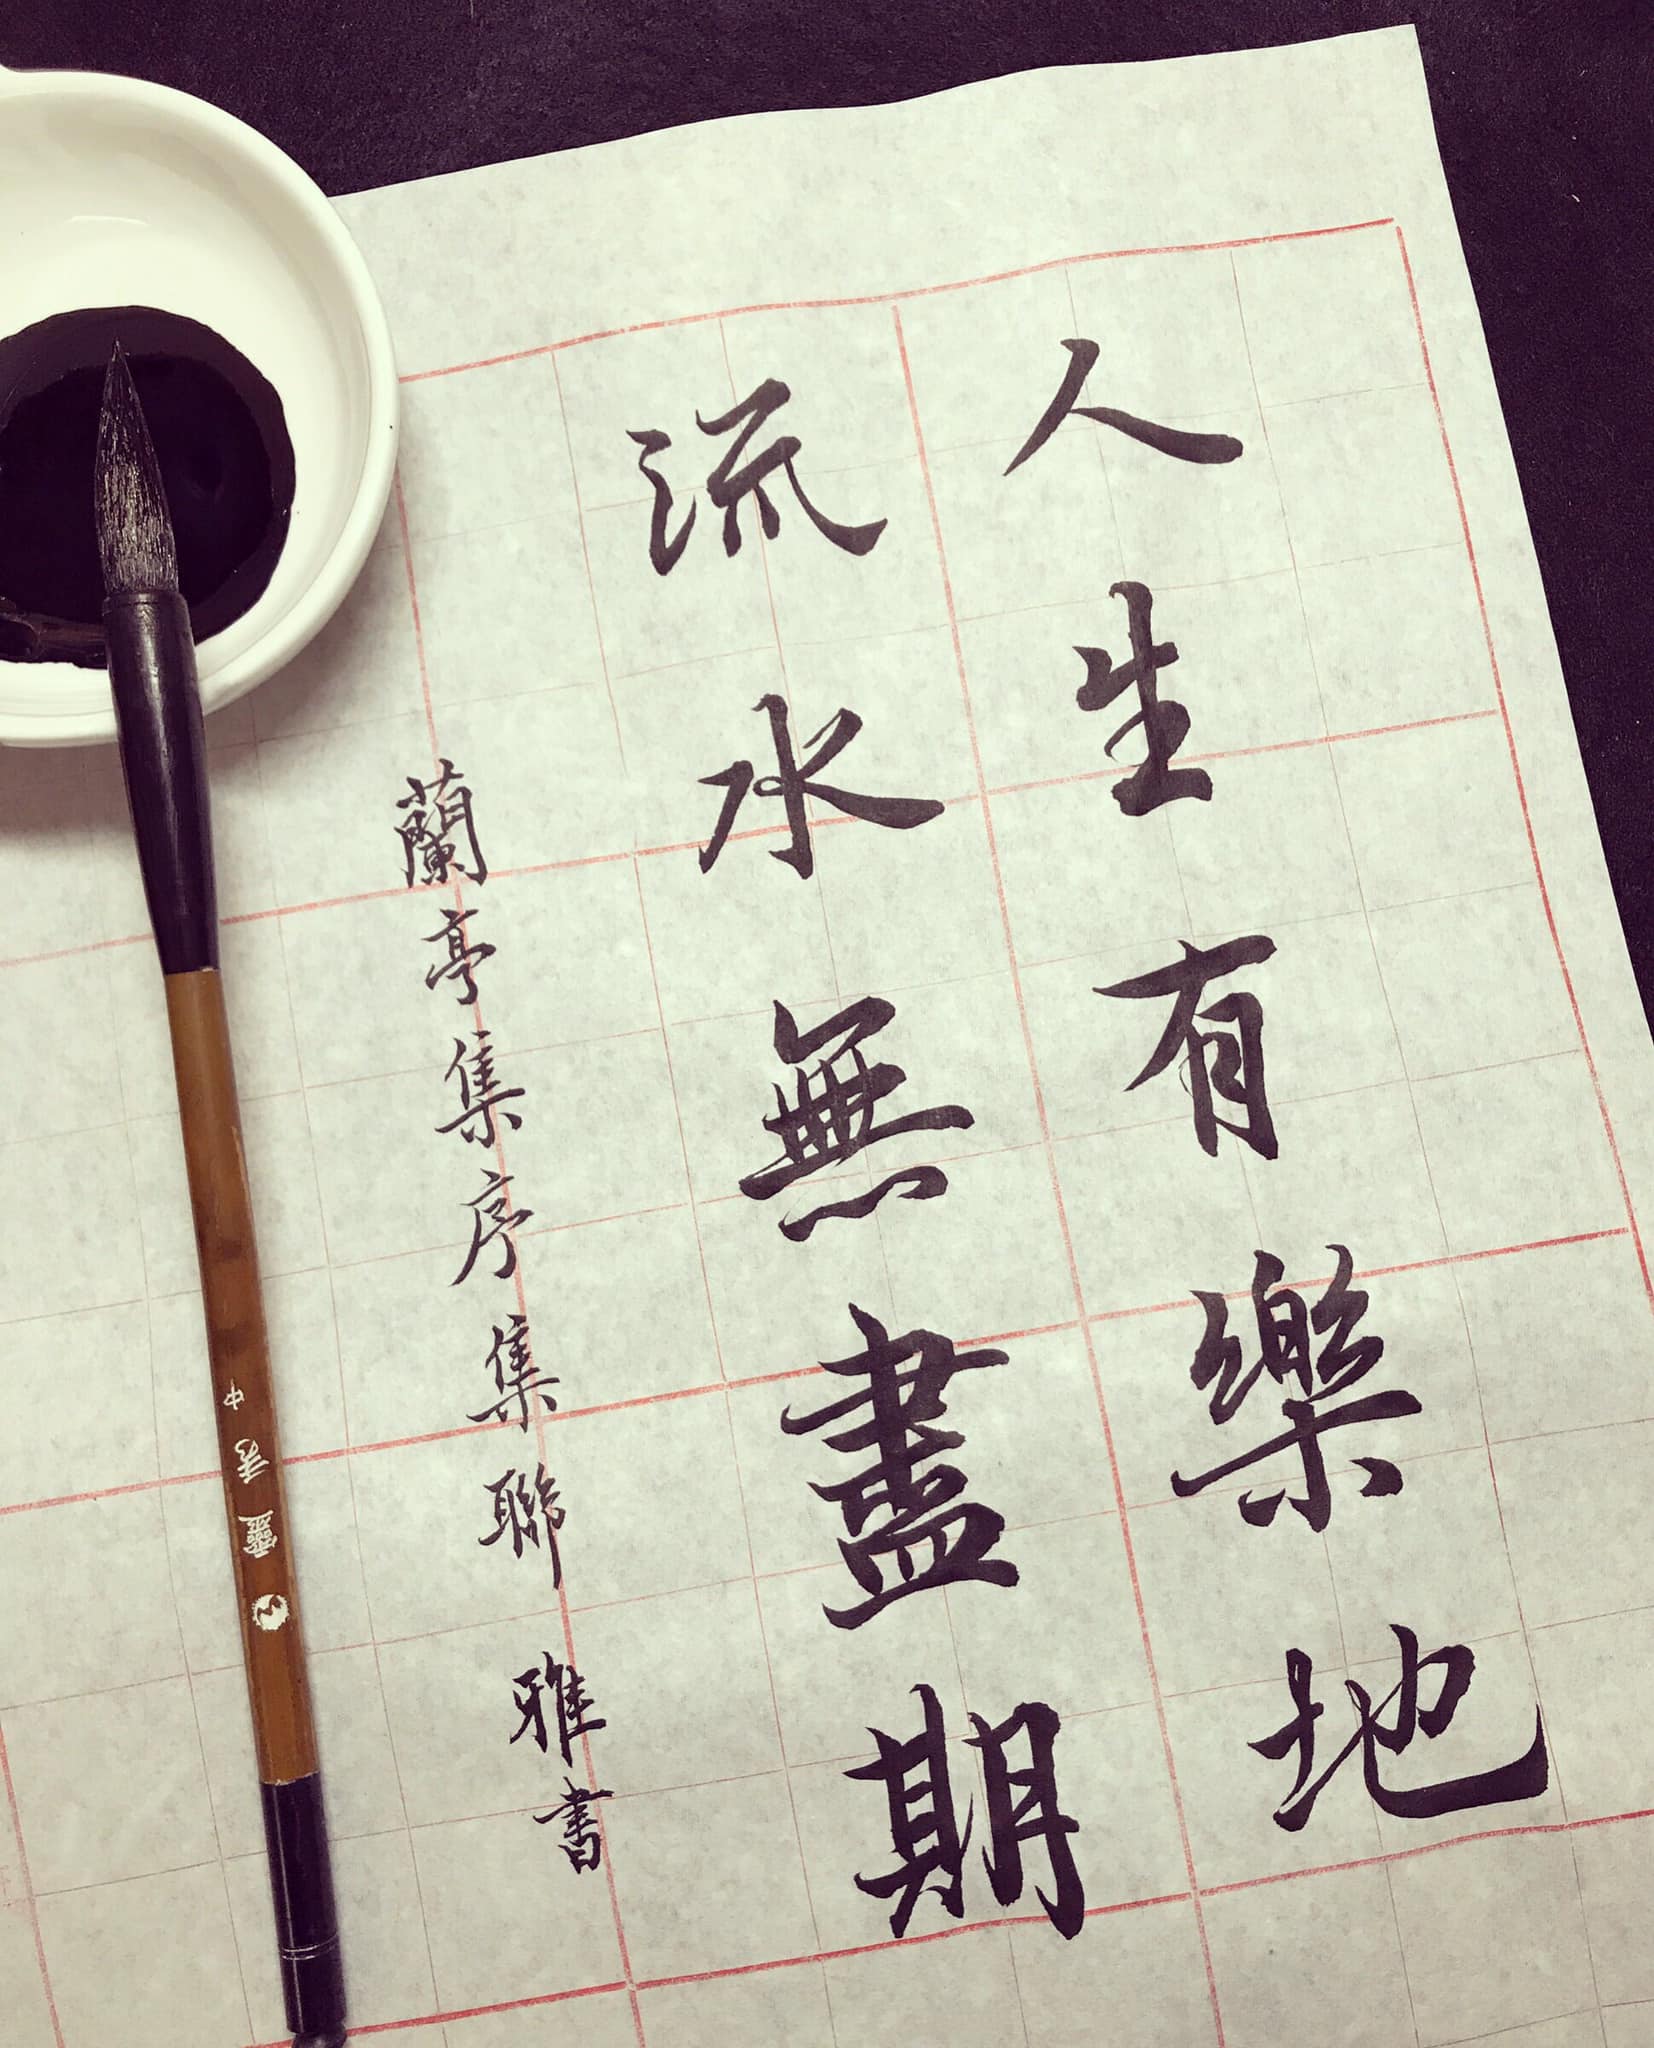 人生有樂地
流水無盡期
蘭亭集序集聯 雅書
靈秀 中